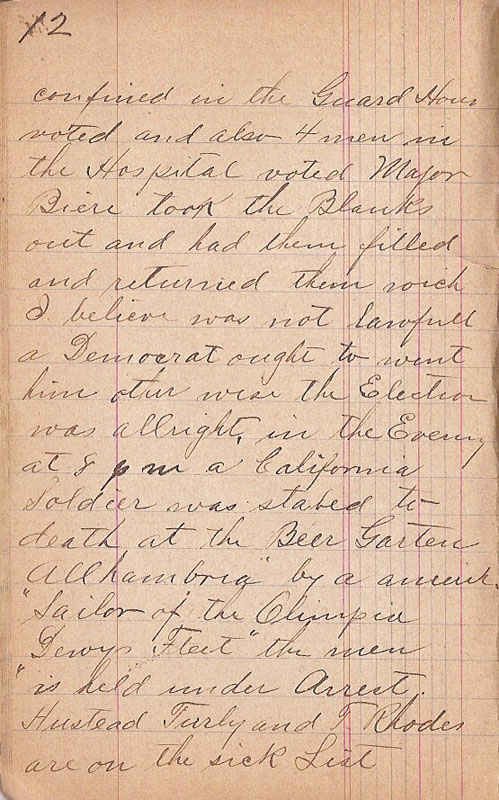 12
confined in the Guard Hous
voted and also 4 men in
the Hospital voted Major
Biere took the Blanks
out and had them filled
and returned them wich
I believe was not lawfull
a Democrat ought to went
him other wise the Election
was allright, in the Evening
at 8 pm a California
Soldier was stabed to
death at the Beer Garten
Allhambria" by a amerik.
"Sailor of the Olimpia
Dewys Fleet" the men
"is held under Arrest.
Hustead Turly and T Rhodes
are on the sick List